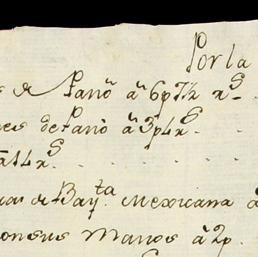 Por la
s de Pano a 6p 7½ r.s
es de Pano a 3p 4 r.s
a 14 r.s
de Bay.ta Mexicana a
Manos a 2p.